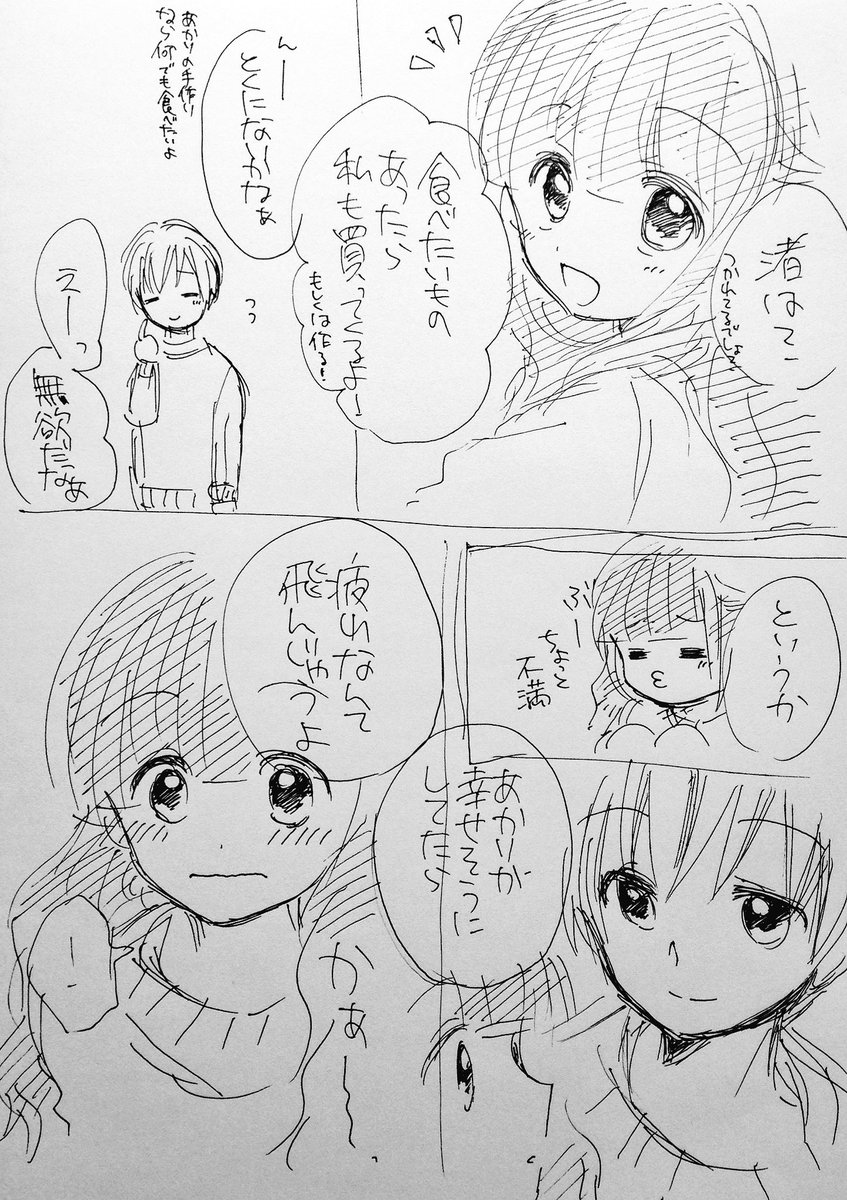 渚は?
つかれてるでしょ?
食べたいもの
あったら
私も買ってくるよー!
もしくは作る!
んー
とくにないかなぁ
あかりの手作り
なら何でも食べたいよ
えーっ
無欲だなぁ
というか
ぶー
ちょっと
不満
あかりが
幸せそうに
してたら
疲れなんて
飛んじゃうよ
かぁー
!